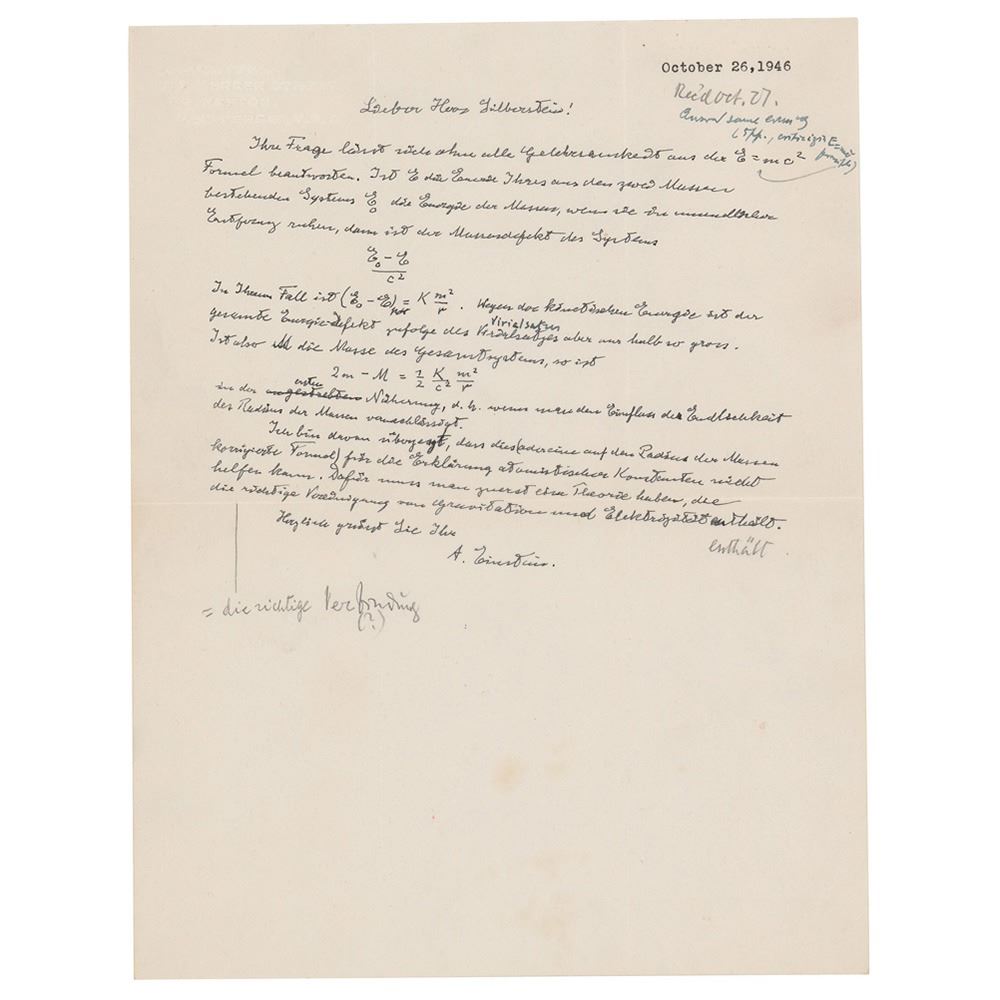 October 26, 1946
Rec'd Oct. 27.
Answ'd same evening
(5 pp., criticizing E=mc²
formula)
Lieber Herr Silberstein!
Ihre Frage lässt sich ohne alle Gelehrsamkeit aus der E = mc²
Formel beantworten. Ist E die Energie Ihres aus den zwei Massen
bestehenden Systems E₀ die Energie der Massen, wenn sie in unendlicher
Entfernung ruhen, dann ist der Massendefekt des Systems
(E₀ - E)/c²
In Ihrem Fall ist (E₀ - E) = K m²/r . Wegen der kinetischen Energie ist der
gesamte Energie-Defekt zufolge des Virialsatzes aber nur halb so gross.
Virialsatzes
Ist also M die Masse des Gesamtsystems, so ist
2m - M = 1/2 K/c² m²/r
in der ersten Näherung, d. h. wenn man den Einfluss der Endlichkeit
des Radius der Massen vernachlässigt.
Ich bin davon überzeugt, dass dies (oder eine auf den Radius der Massen
korrigierte Formel) für die Erklärung atomistischer Konstanten nicht
helfen kann. Dafür muss man zuerst eine Theorie haben, die
die richtige Vereinigung von Gravitation und Elektrizität enthält.
enthält
Herzlich grüsst Sie Ihr
A. Einstein.
= die richtige Verbindung
(?)